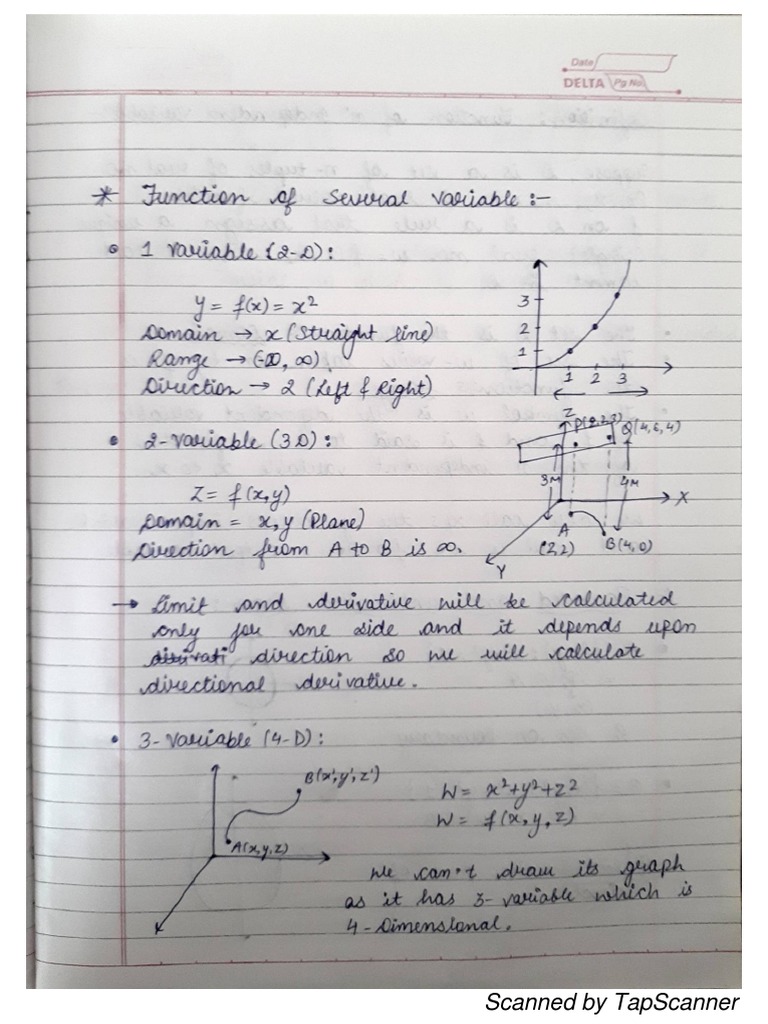 Date
DELTA Pg No.
* Function of Several variable :-
• 1 variable (2-D) :
y = f(x) = x²
Domain → x (Straight line)
Range → (-∞, ∞)
Direction → 2 (Left & Right)
3
2
1
1 2 3
• 2-variable (3D) :
Z = f(x,y)
Domain = x, y (Plane)
Direction from A to B is ∞.
Z
Q(4,6,4)
3M
4M
X
A
(2,2)
B(4,0)
Y
→ Limit and derivative will be calculated
only for one side and it depends upon
direction so we will calculate
directional derivative.
• 3-variable (4-D) :
B(x',y',z')
A(x,y,z)
W = x²+y²+z²
W = f(x,y,z)
we can't draw its graph
as it has 3-variable which is
4-Dimensional.
Scanned by TapScanner